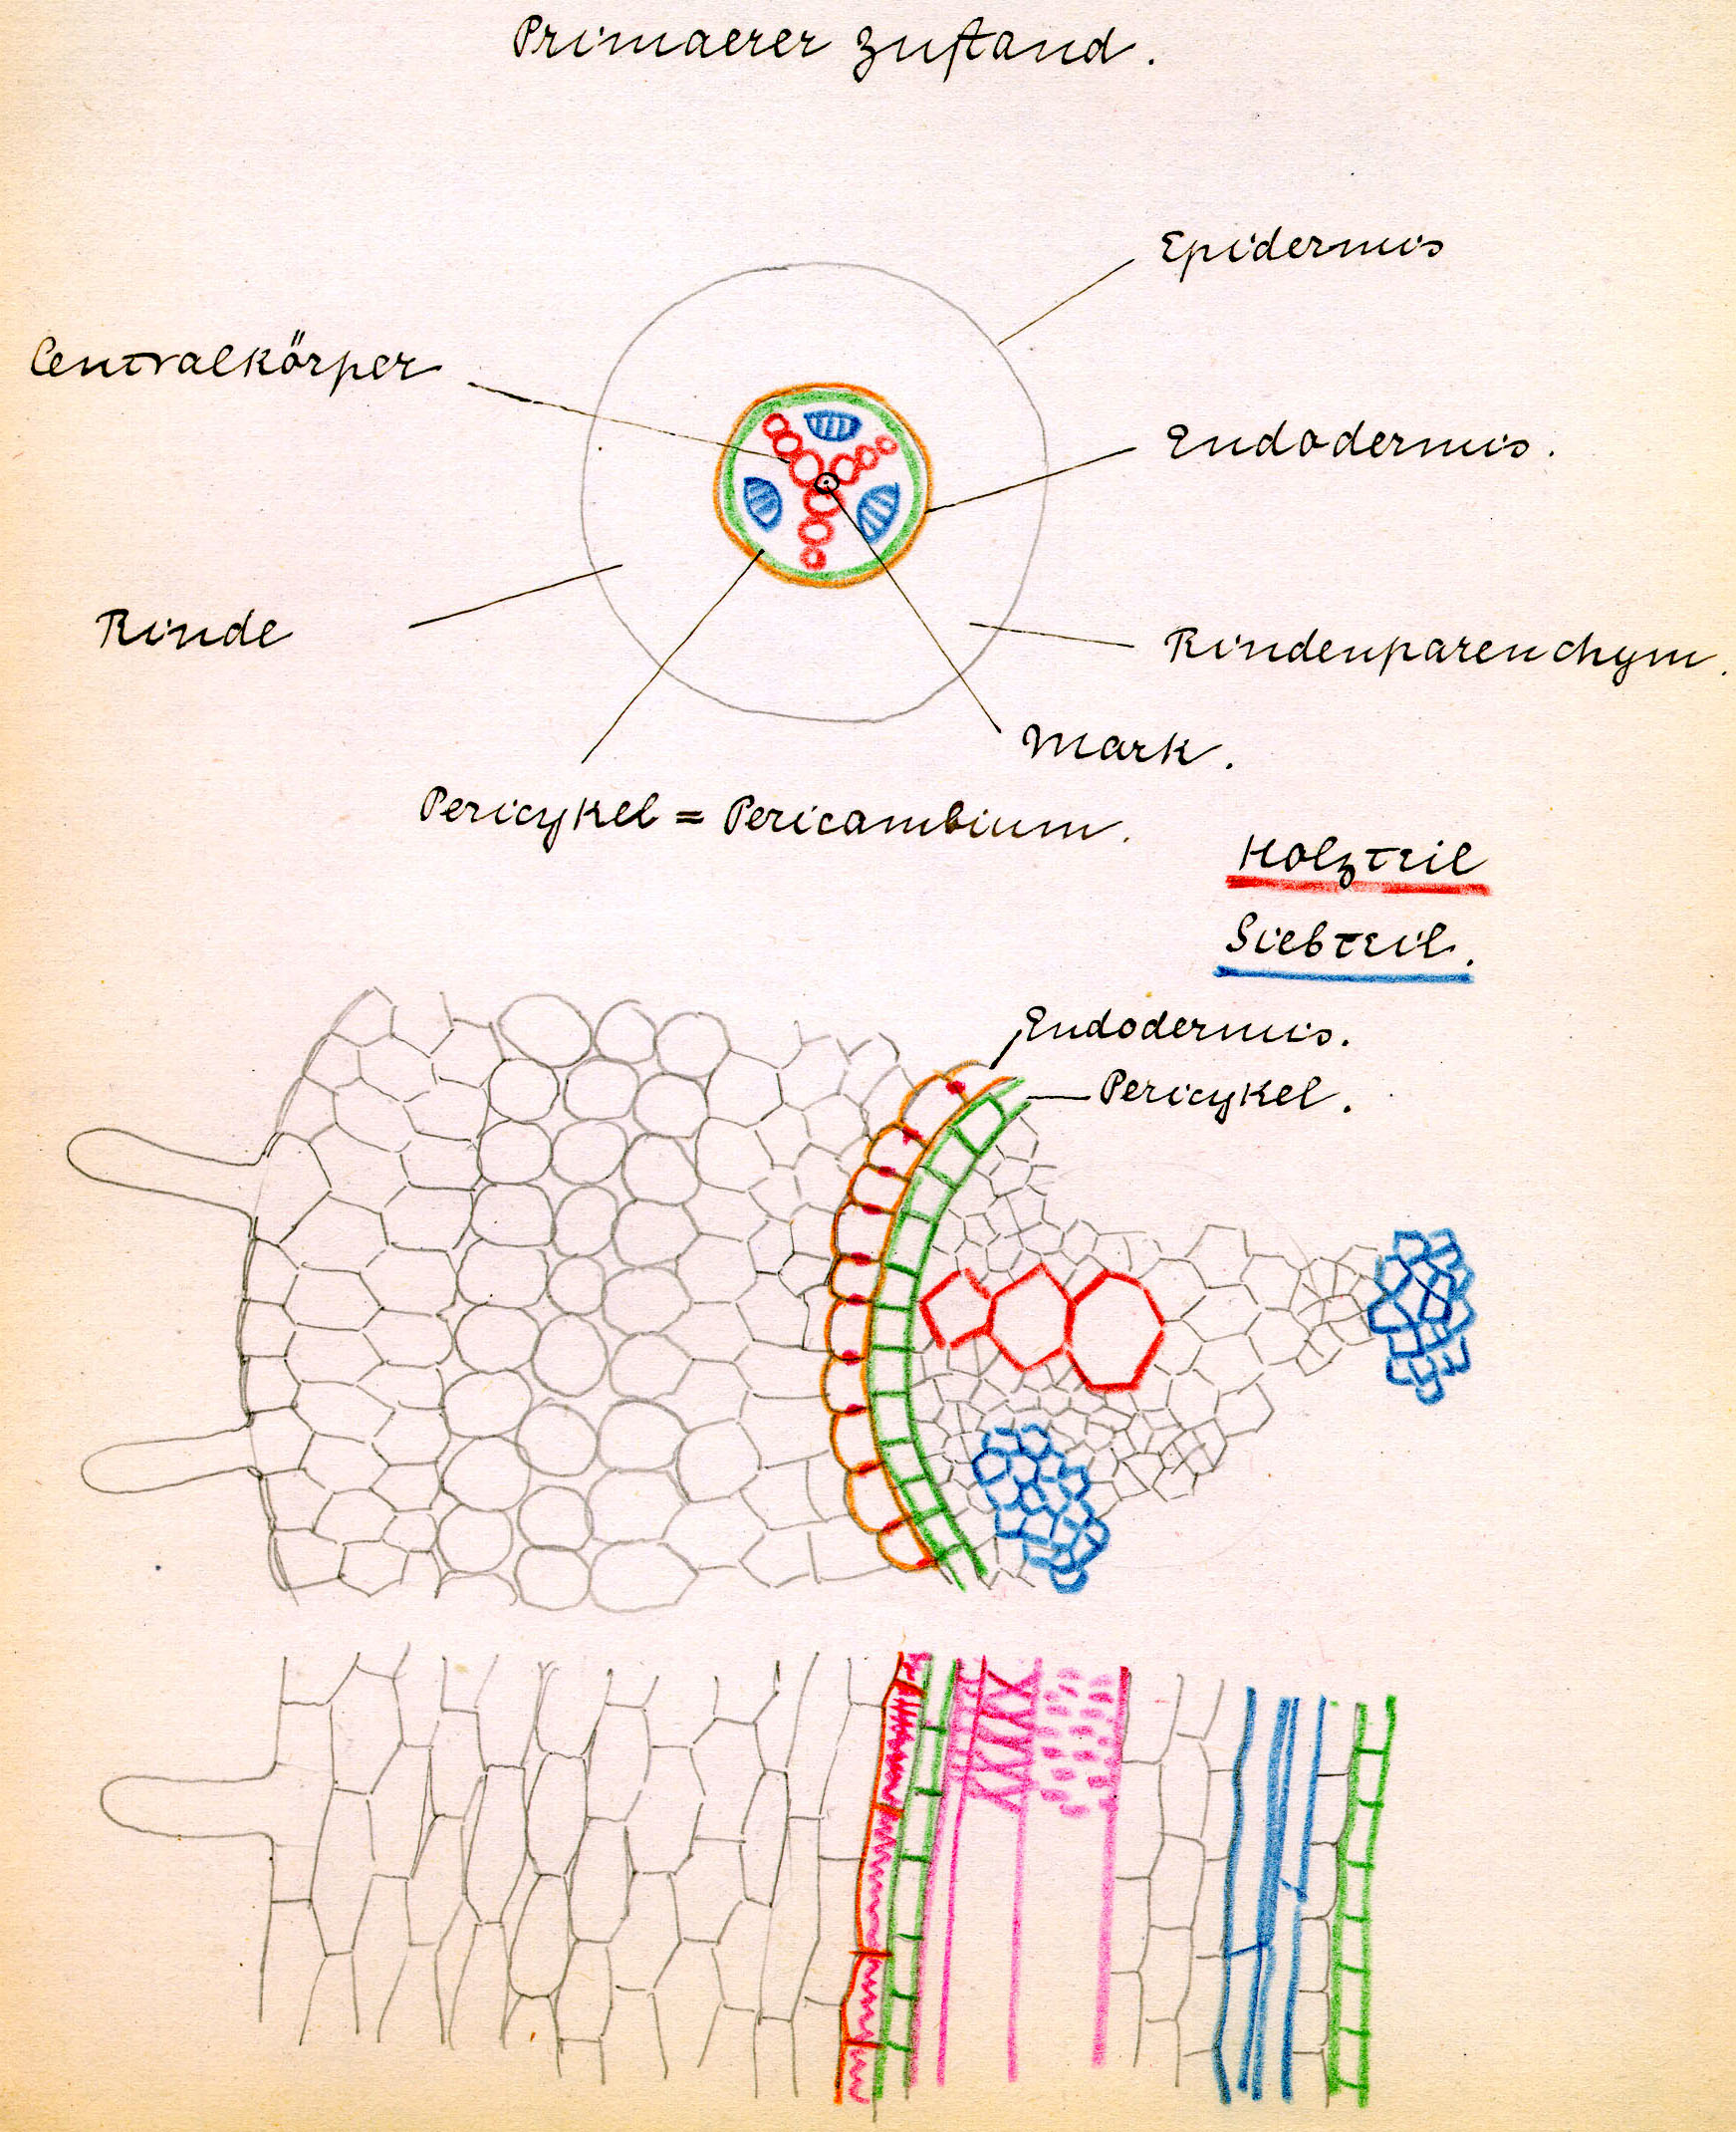 Primaerer Zustand.
Epidermis
Centralkörper
Endodermis.
Rinde
Rindenparenchym.
Mark.
Pericykel = Pericambium.
Holzteil
Siebteil.
Endodermis.
Pericykel.